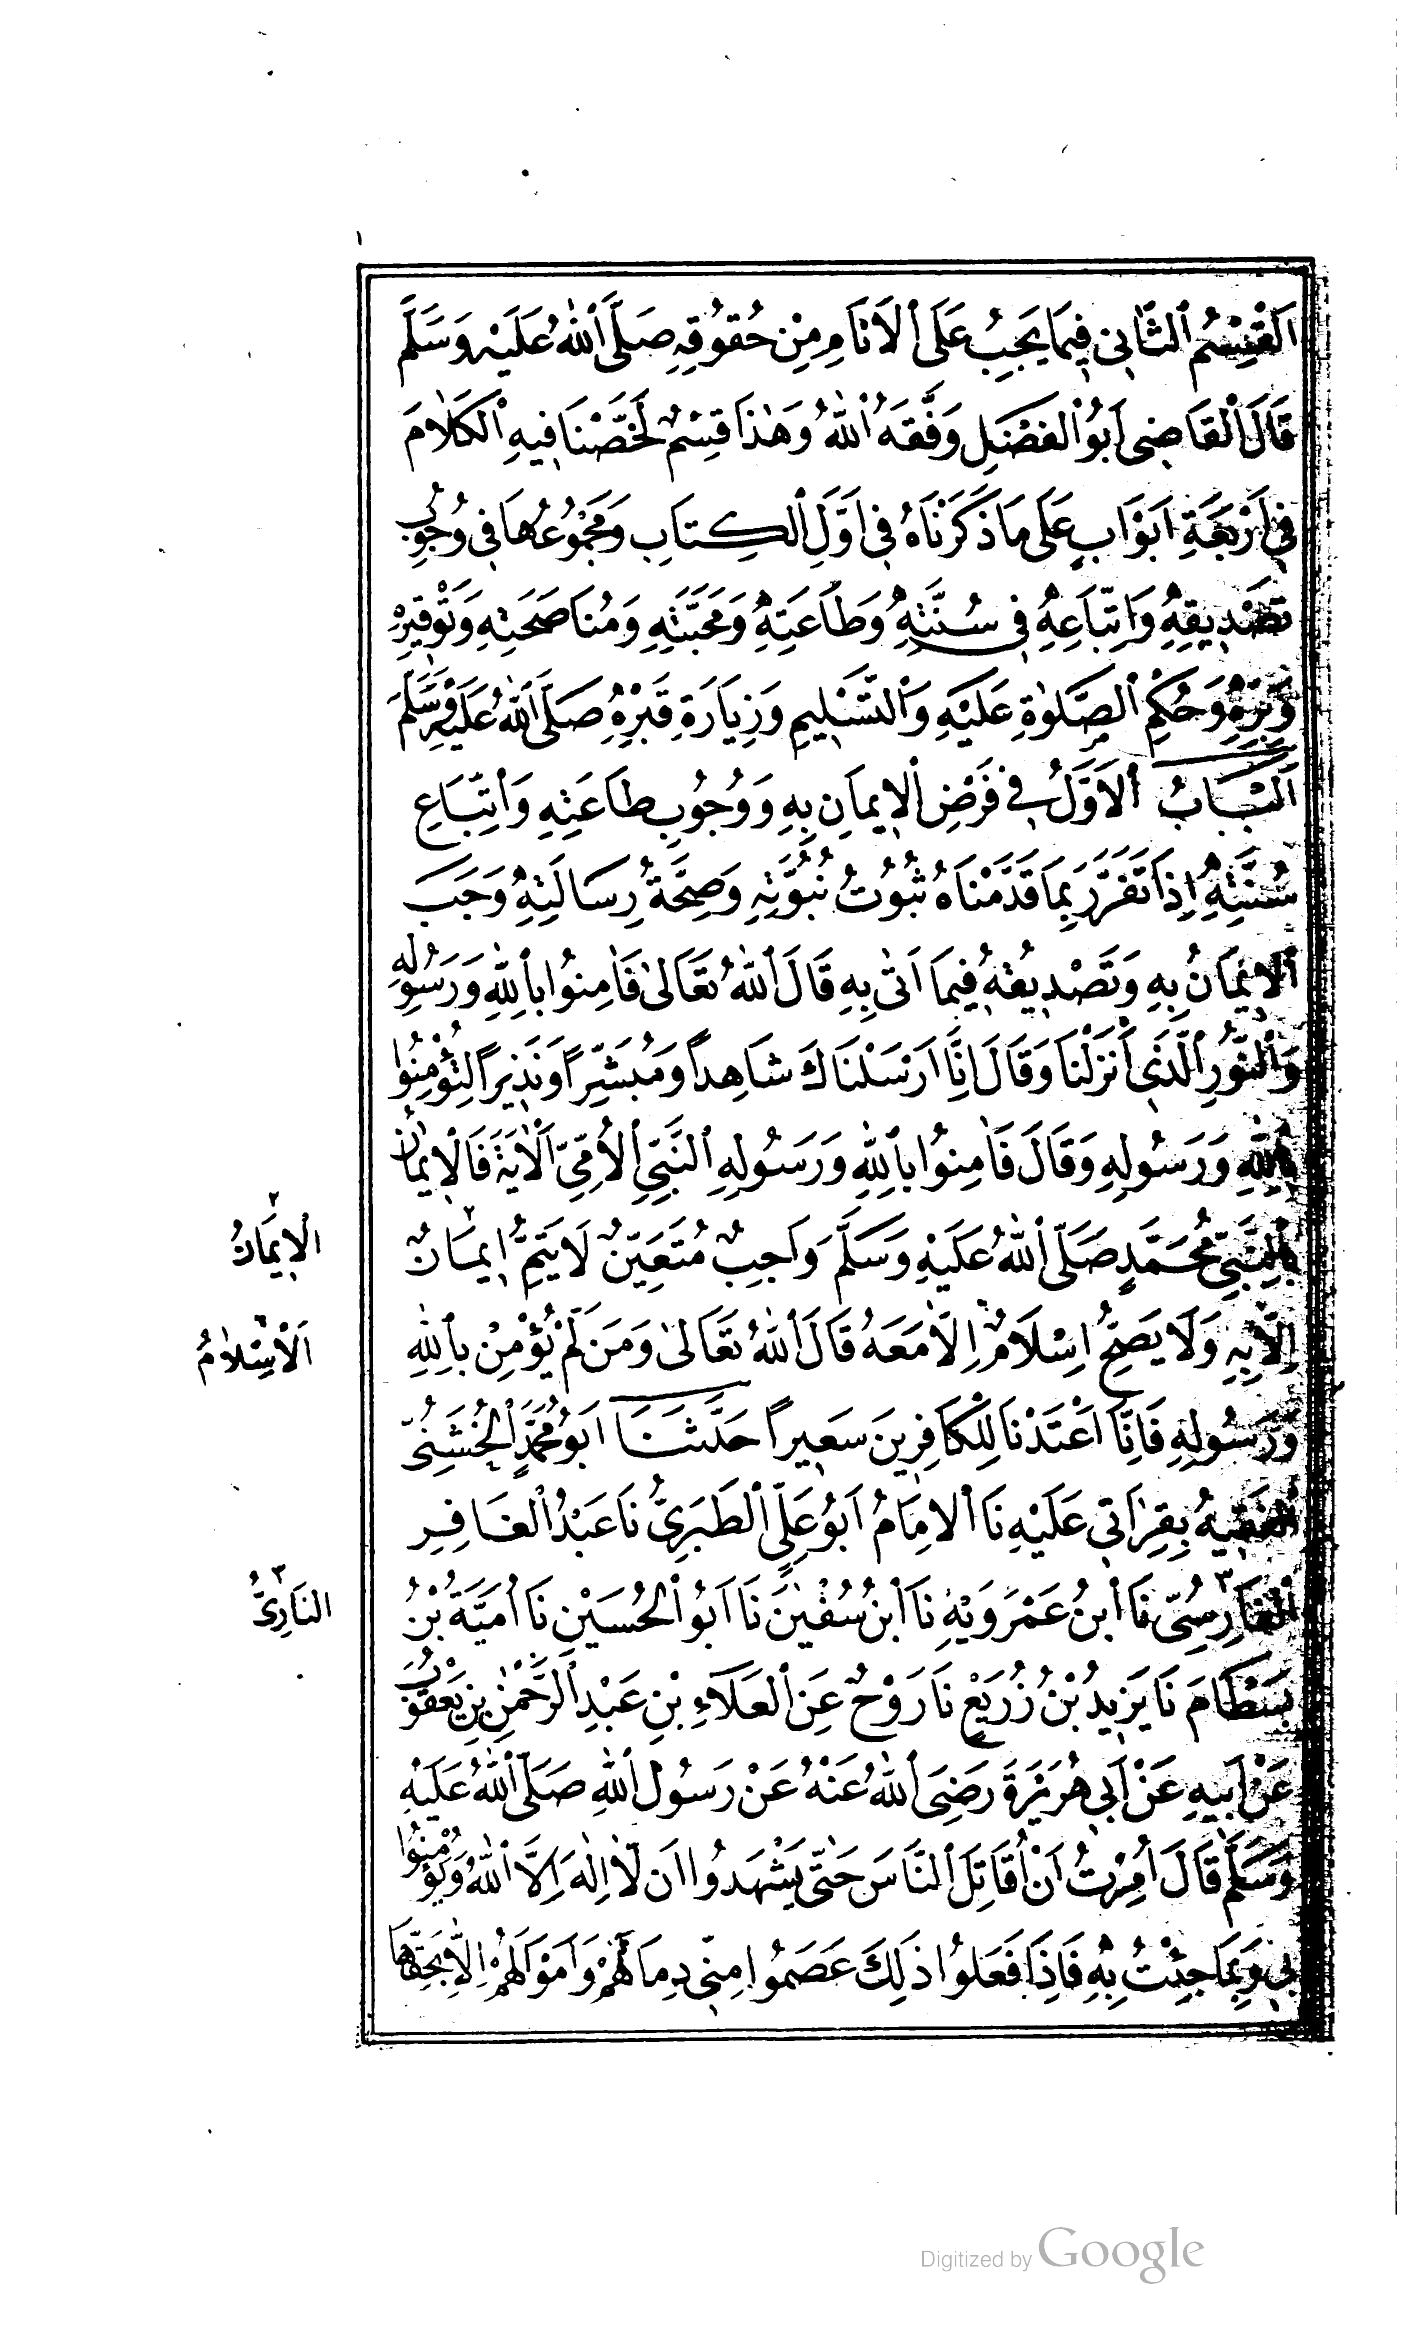 اَلْقِسْمُ الثَّانِى فِيمَا يَجِبُ عَلَى الْاَنَامِ مِنْ حُقُوقِهِ صَلَّى اللهُ عَلَيْهِ وَسَلَّمَ
قَالَ الْقَاضِى اَبُو الْفَضْلِ وَفَّقَهُ اللهُ وَهٰذَا قِسْمٌ لَخَّصْنَا فِيهِ الْكَلَامَ
فِى اَرْبَعَةِ اَبْوَابٍ عَلَى مَا ذَكَرْنَاهُ فِى اَوَّلِ الْكِتَابِ وَمَجْمُوعُهَا فِى وُجُوبِ
تَصْدِيقِهِ وَاتِّبَاعِهِ فِى سُنَّتِهِ وَطَاعَتِهِ وَمَحَبَّتِهِ وَمُنَاصَحَتِهِ وَتَوْقِيرِهِ
وَبِرِّهِ وَحُكْمِ الصَّلٰوةِ عَلَيْهِ وَالتَّسْلِيمِ وَزِيَارَةِ قَبْرِهِ صَلَّى اللهُ عَلَيْهِ وَسَلَّمَ
اَلْبَابُ الْاَوَّلُ فِى فَرْضِ الْاِيمَانِ بِهِ وَوُجُوبِ طَاعَتِهِ وَاتِّبَاعِ
سُنَّتِهِ اِذَا تَقَرَّرَ بِمَا قَدَّمْنَاهُ ثُبُوتُ نُبُوَّتِهِ وَصِحَّةُ رِسَالَتِهِ وَجَبَ
الْاِيمَانُ بِهِ وَتَصْدِيقُهُ فِيمَا اَتٰى بِهِ قَالَ اللهُ تَعَالٰى فَاٰمِنُوا بِاللهِ وَرَسُولِهِ
وَالنُّورِ الَّذِى اَنْزَلْنَا وَقَالَ اِنَّا اَرْسَلْنَاكَ شَاهِداً وَمُبَشِّراً وَنَذِيراً لِتُؤْمِنُوا
بِاللهِ وَرَسُولِهِ وَقَالَ فَاٰمِنُوا بِاللهِ وَرَسُولِهِ النَّبِىِّ الْاُمِّىِّ الْاٰيَةَ فَالْاِيمَانُ
بِالنَّبِىِّ مُحَمَّدٍ صَلَّى اللهُ عَلَيْهِ وَسَلَّمَ وَاجِبٌ مُتَعَيِّنٌ لَا يَتِمُّ اِيمَانٌ
اِلَّا بِهِ وَلَا يَصِحُّ اِسْلَامٌ اِلَّا مَعَهُ قَالَ اللهُ تَعَالٰى وَمَنْ لَمْ يُؤْمِنْ بِاللهِ
وَرَسُولِهِ فَاِنَّا اَعْتَدْنَا لِلْكَافِرِينَ سَعِيراً حَدَّثَنَا اَبُو مُحَمَّدٍ الْخُشَنِىُّ
الْفَقِيهُ بِقِرَاَتِى عَلَيْهِ نَا الْاِمَامُ اَبُو عَلِىٍّ الطَّبَرِىُّ نَا عَبْدُ الْغَافِرِ
الْفَارِسِىُّ نَا ابْنُ عَمْرَوَيْهِ نَا ابْنُ سُفْيٰنَ نَا اَبُو الْحُسَيْنِ نَا اُمَيَّةُ بْنُ
بِسْطَامَ نَا يَزِيدُ بْنُ زُرَيْعٍ نَا رَوْحٌ عَنِ الْعَلَاءِ بْنِ عَبْدِ الرَّحْمٰنِ بْنِ يَعْقُوبَ
عَنْ اَبِيهِ عَنْ اَبِى هُرَيْرَةَ رَضِىَ اللهُ عَنْهُ عَنْ رَسُولِ اللهِ صَلَّى اللهُ عَلَيْهِ
وَسَلَّمَ قَالَ اُمِرْتُ اَنْ اُقَاتِلَ النَّاسَ حَتّٰى يَشْهَدُوا اَنْ لَا اِلٰهَ اِلَّا اللهُ وَيُؤْمِنُوا
بِى وَبِمَا جِئْتُ بِهِ فَاِذَا فَعَلُوا ذٰلِكَ عَصَمُوا مِنِّى دِمَاءَهُمْ وَاَمْوَالَهُمْ اِلَّا بِحَقِّهَا
٢
الْاِيمَانُ
اَلْاِسْلَامُ
٣
النَارِىُّ
Digitized by Google